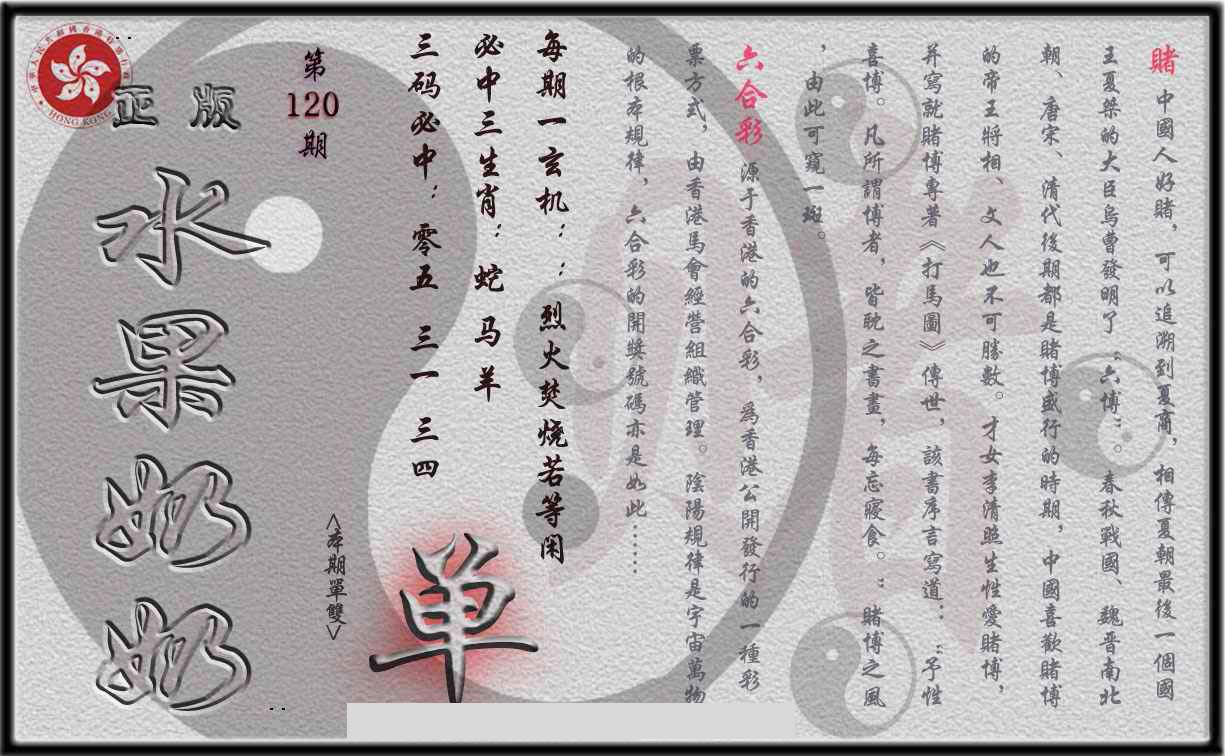 賭 中國人好賭，可以追溯到夏商，相傳夏朝最後一個國
王夏桀的大臣烏曹發明了“六博”。春秋戰國、魏晋南北
朝、唐宋、清代後期都是賭博盛行的時期，中國喜歡賭博
的帝王將相、文人也不可勝數。才女李清照生性愛賭博，
并寫就賭博專著《打馬圖》傳世，該書序言寫道：：“予性
喜博。凡所謂博者，皆耽之書畫，每忘寢食。”：賭博之風
，由此可窺一斑。
六合彩 源于香港的六合彩，爲香港公開發行的一種彩
票方式，由香港馬會經營組織管理。陰陽規律是宇宙萬物
的根本規律，六合彩的開獎號碼亦是如此……
每期一玄机：：烈火焚烧若等闲
必中三生肖：蛇 马 羊
三码必中：零五 三一 三四
单
<本期單雙>
第
120
期
正版
水果奶奶
HONG KONG